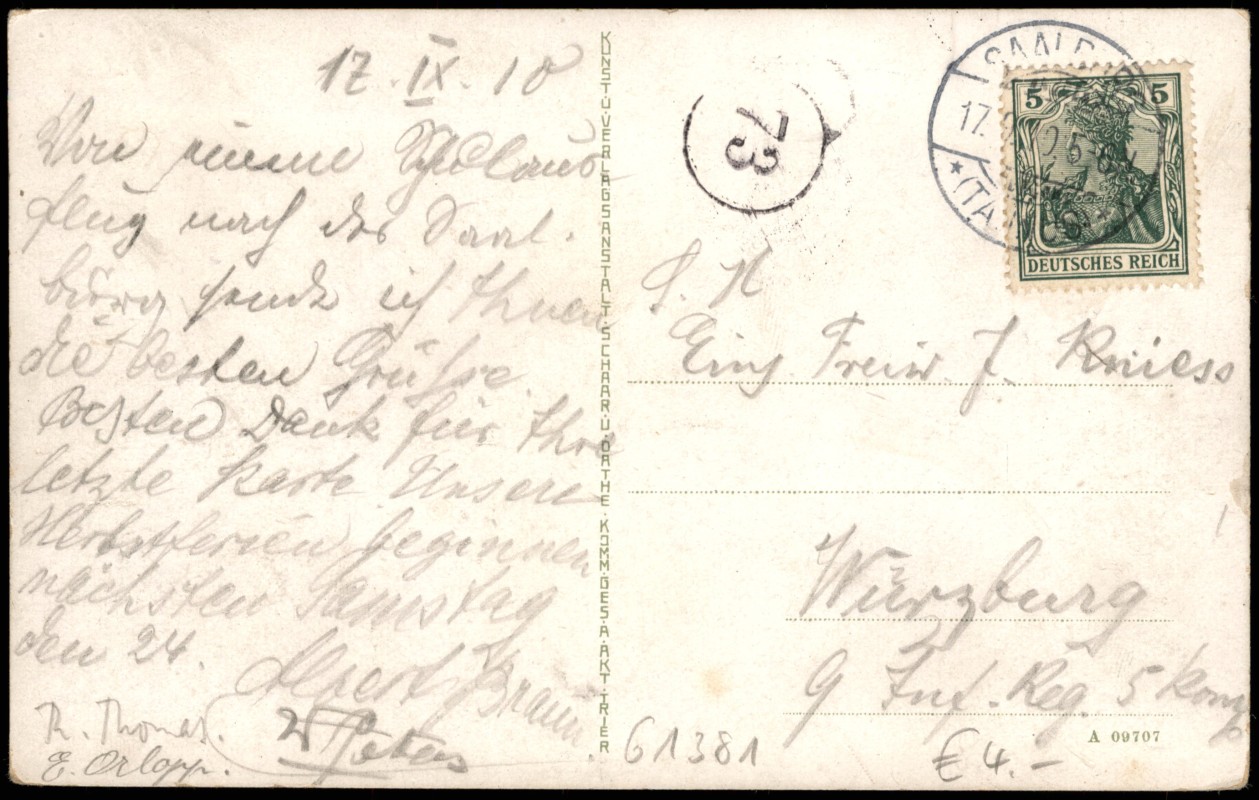 17. IX. 10
Von einem Schulaus
flug nach der Saal.
burg sende ich Ihnen
die besten Grüsse.
Besten Dank für Ihre
letzte Karte Unsere
Herbstferien beginnen
nächsten Samstag
den 24.
Albert Braun
Th. Thomas.
E. Orlopp.
KUNST-U-VERLAGSANSTALT·SCHAAR-U-DATHE·KOMM·GES·A·AKT·TRIER
73
SAALBURG
17.
(TAUNUS)
5 5
DEUTSCHES REICH
S. H
Einj Freiw J. Kniess
Würzburg
9 Inf. Reg. 5 Komp
A 09707
61381
€ 4.-